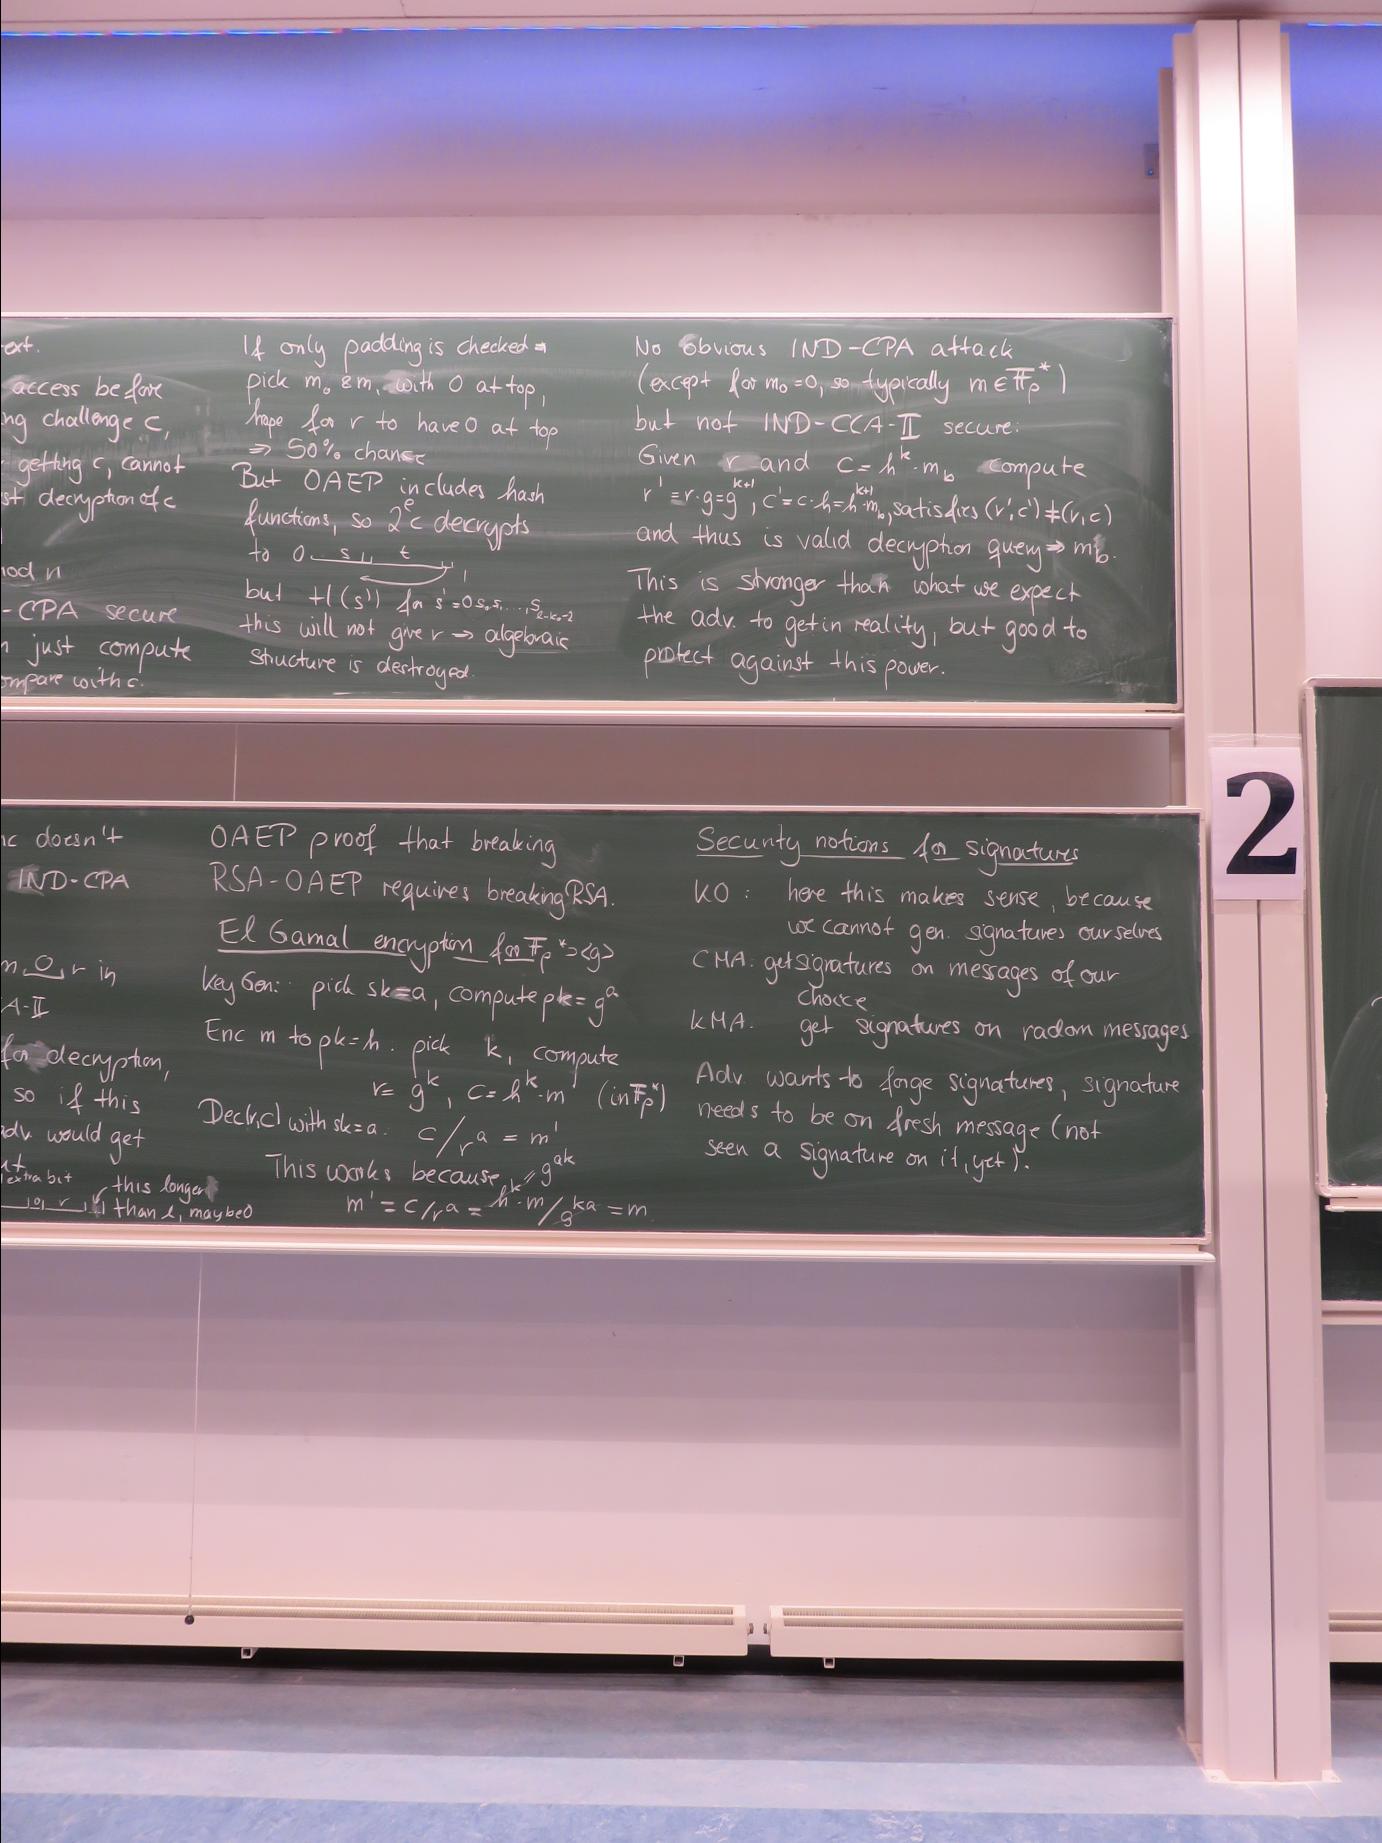 ext.
access before
ng challenge c,
getting c, cannot
st decryption of c
mod n
-CPA secure
n just compute
ompare with c.
If only padding is checked →
pick m₀ & m₁ with 0 at top,
hope for r to have 0 at top
⇒ 50% chance
But OAEP includes hash
functions, so 2ᵉc decrypts
to 0 s t
but H(s') for s'=0s₀s₁...,
this will not give r → algebraic
structure is destroyed.
No obvious IND-CPA attack
(except for m₀=0, so typically m∈𝔽ₚ*)
but not IND-CCA-II secure:
Given r and c = hᵏ·m_b compute
r' = r·g = gᵏ⁺¹, c' = c·h = hᵏ⁺¹·m_b, satisfies (r',c') ≠ (r,c)
and thus is valid decryption query ⇒ m_b.
This is stronger than what we expect
the adv. to get in reality, but good to
protect against this power.
nc doesn't
IND-CPA
m 0 r in
A-II
for decryption,
so if this
adv. would get
extra bit
this longer
0 r
than l, maybe 0
OAEP proof that breaking
RSA-OAEP requires breaking RSA.
El Gamal encryption for 𝔽ₚ*=<g>
KeyGen: pick sk=a, compute pk=gᵃ
Enc m to pk=h. pick k, compute
r= gᵏ, c=hᵏ·m (in 𝔽ₚ*)
Dec(r,c) with sk=a. c/rᵃ = m'
This works because gᵃᵏ
m' = c/rᵃ = hᵏ·m/gᵏᵃ = m
Security notions for signatures
KO: here this makes sense, because
we cannot gen. signatures ourselves
CMA: get signatures on messages of our
choice
KMA. get signatures on radom messages
Adv. wants to forge signatures, signature
needs to be on fresh message (not
seen a signature on it, yet).
2